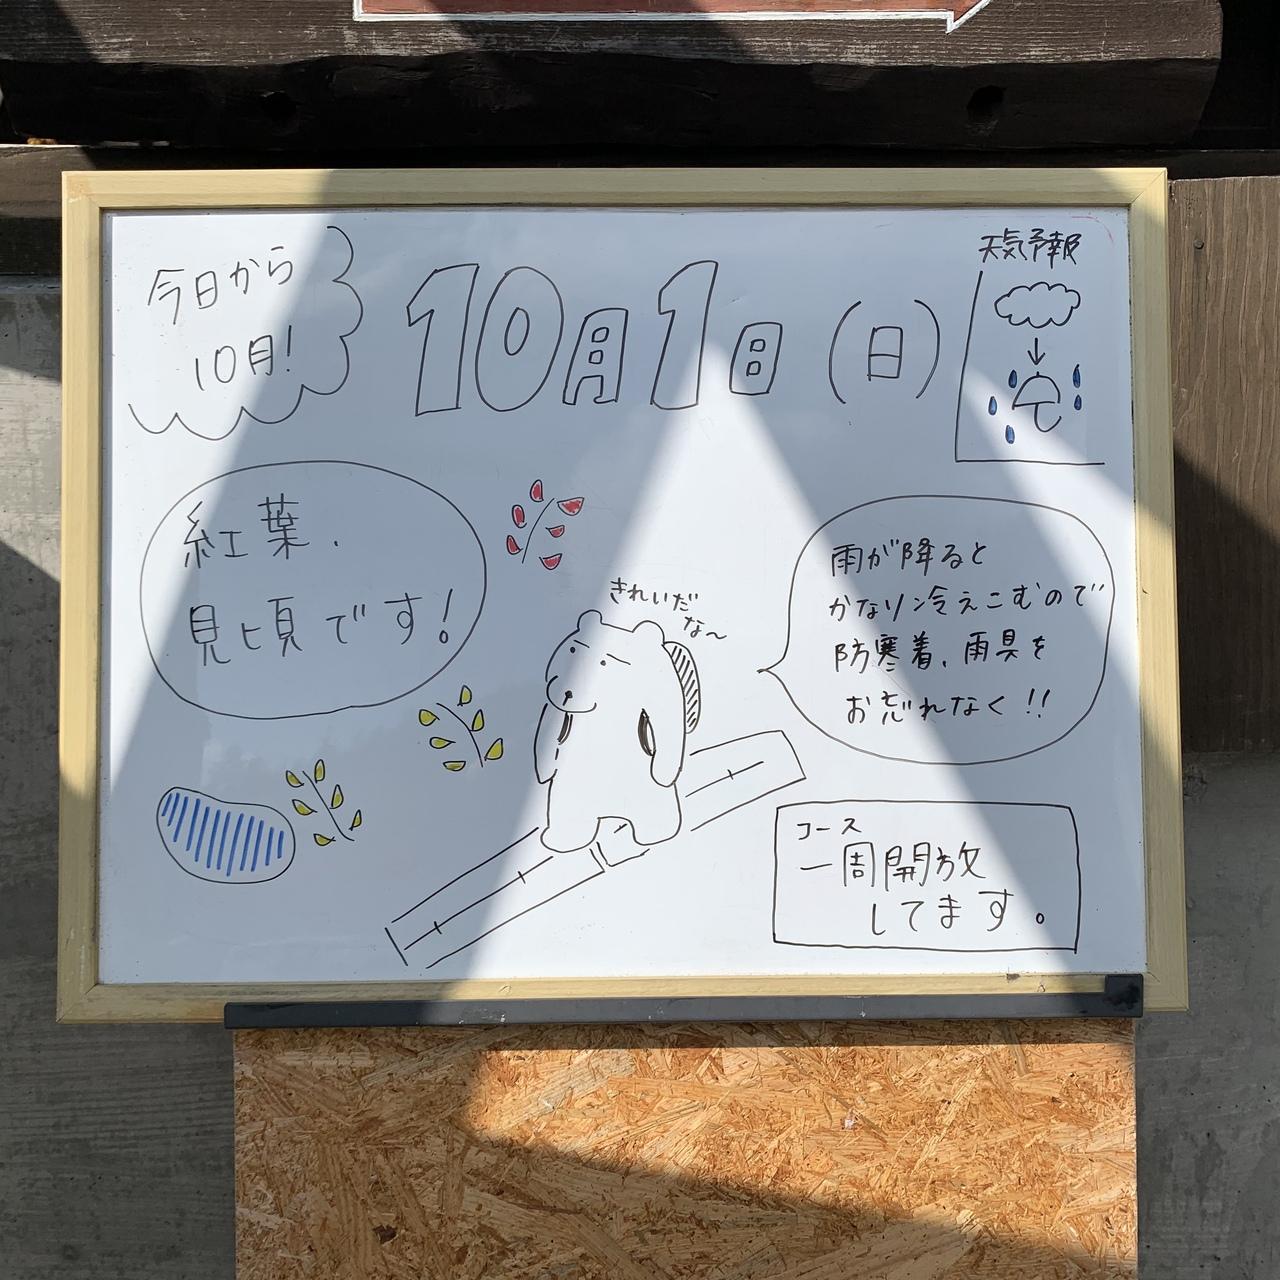 今日から
10月!
10月1日(日)
天気予報
紅葉、
見頃です!
きれいだ
な〜
雨が降ると
かなり冷えこむので
防寒着、雨具を
お忘れなく!!
コース
一周開放
してます。